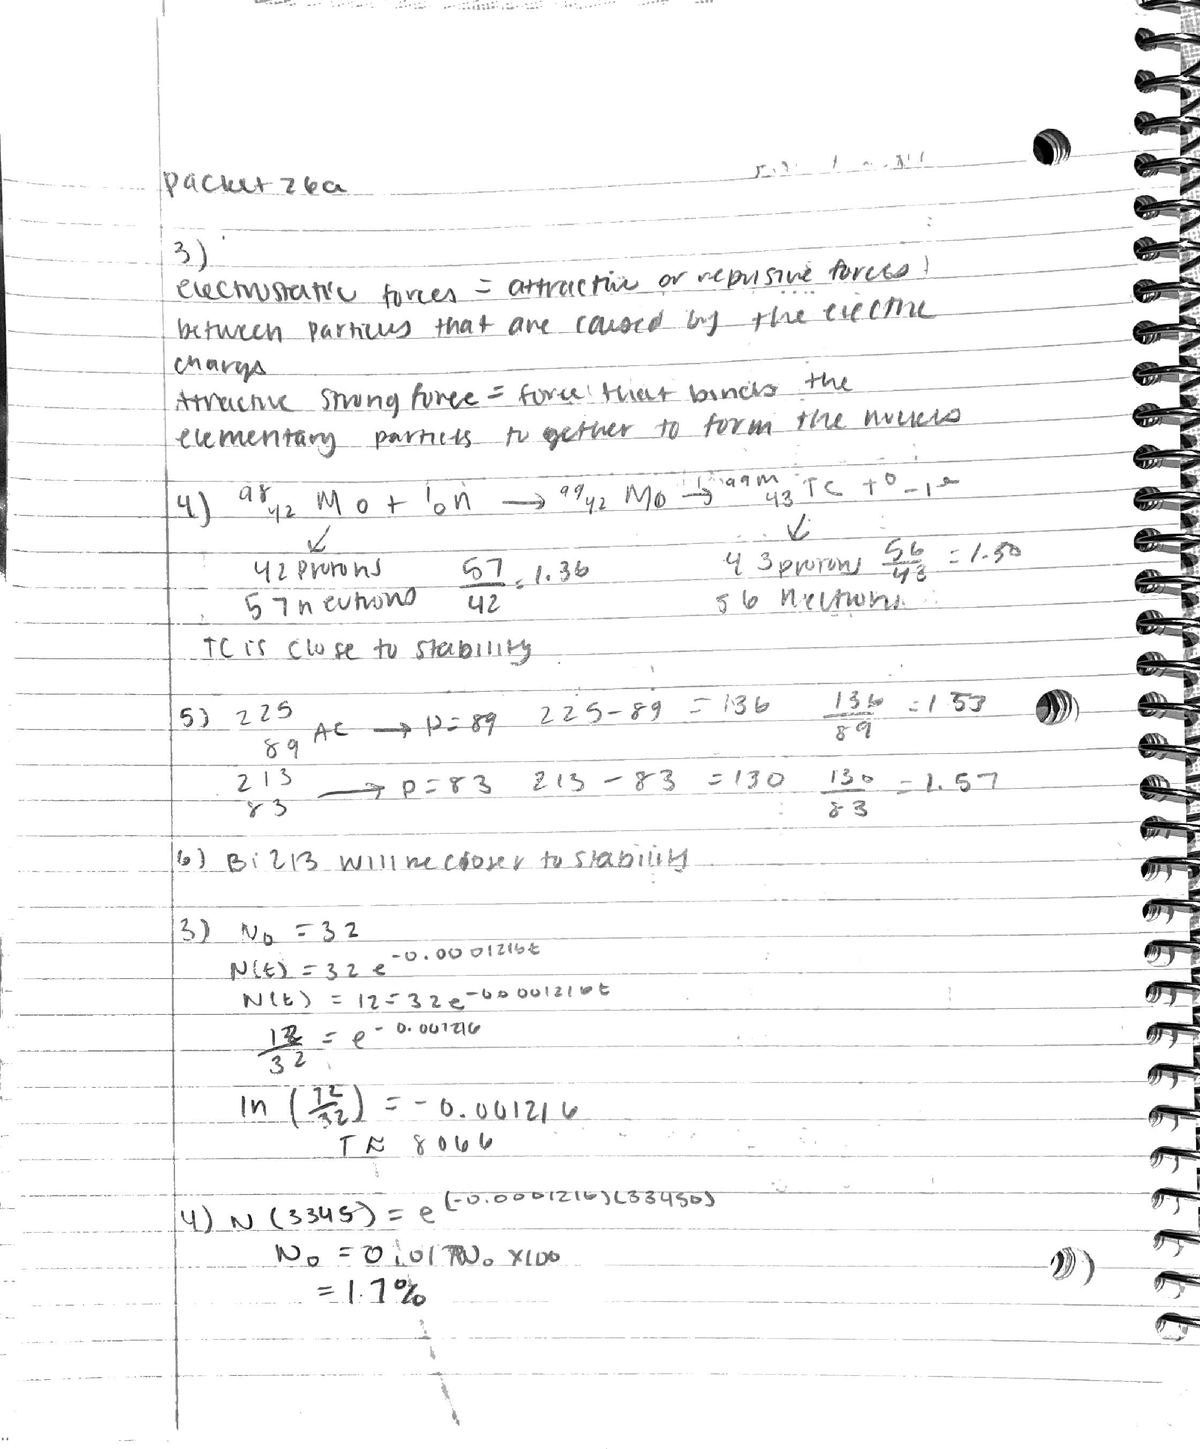 packet 26a
3)
electrostatic forces = attractive or repulsive forces
between particles that are caused by the electric
charge
Attractive strong force = force that binds the
elementary particles together to form the nucleus
4) 98 42 Mo + 1 0 n → 99 42 Mo → 99m 43 TC + 0 -1 e
42 protons 57/42 = 1.36 43 protons 56/43 = 1.30
57 neutrons 56 neutrons
TC is close to stability
5) 225 89 AC → p=89 225-89 = 136 136/89 = 1.53
213 83 → p=83 213-83 = 130 130/83 = 1.57
6) Bi 213 will be closer to stability
3) N0 = 32
N(t) = 32 e^-0.0001216t
N(t) = 12 = 32e^-0.0001216t
12/32 = e^-0.001216
ln (12/32) = -0.001216
T ≈ 8066
4) N (3345) = e^(-0.0001216)(33450)
N0 = 0.017N0 x100
= 1.7%